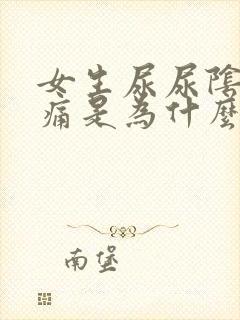 女生尿尿陰
痛是為什麼
南堡